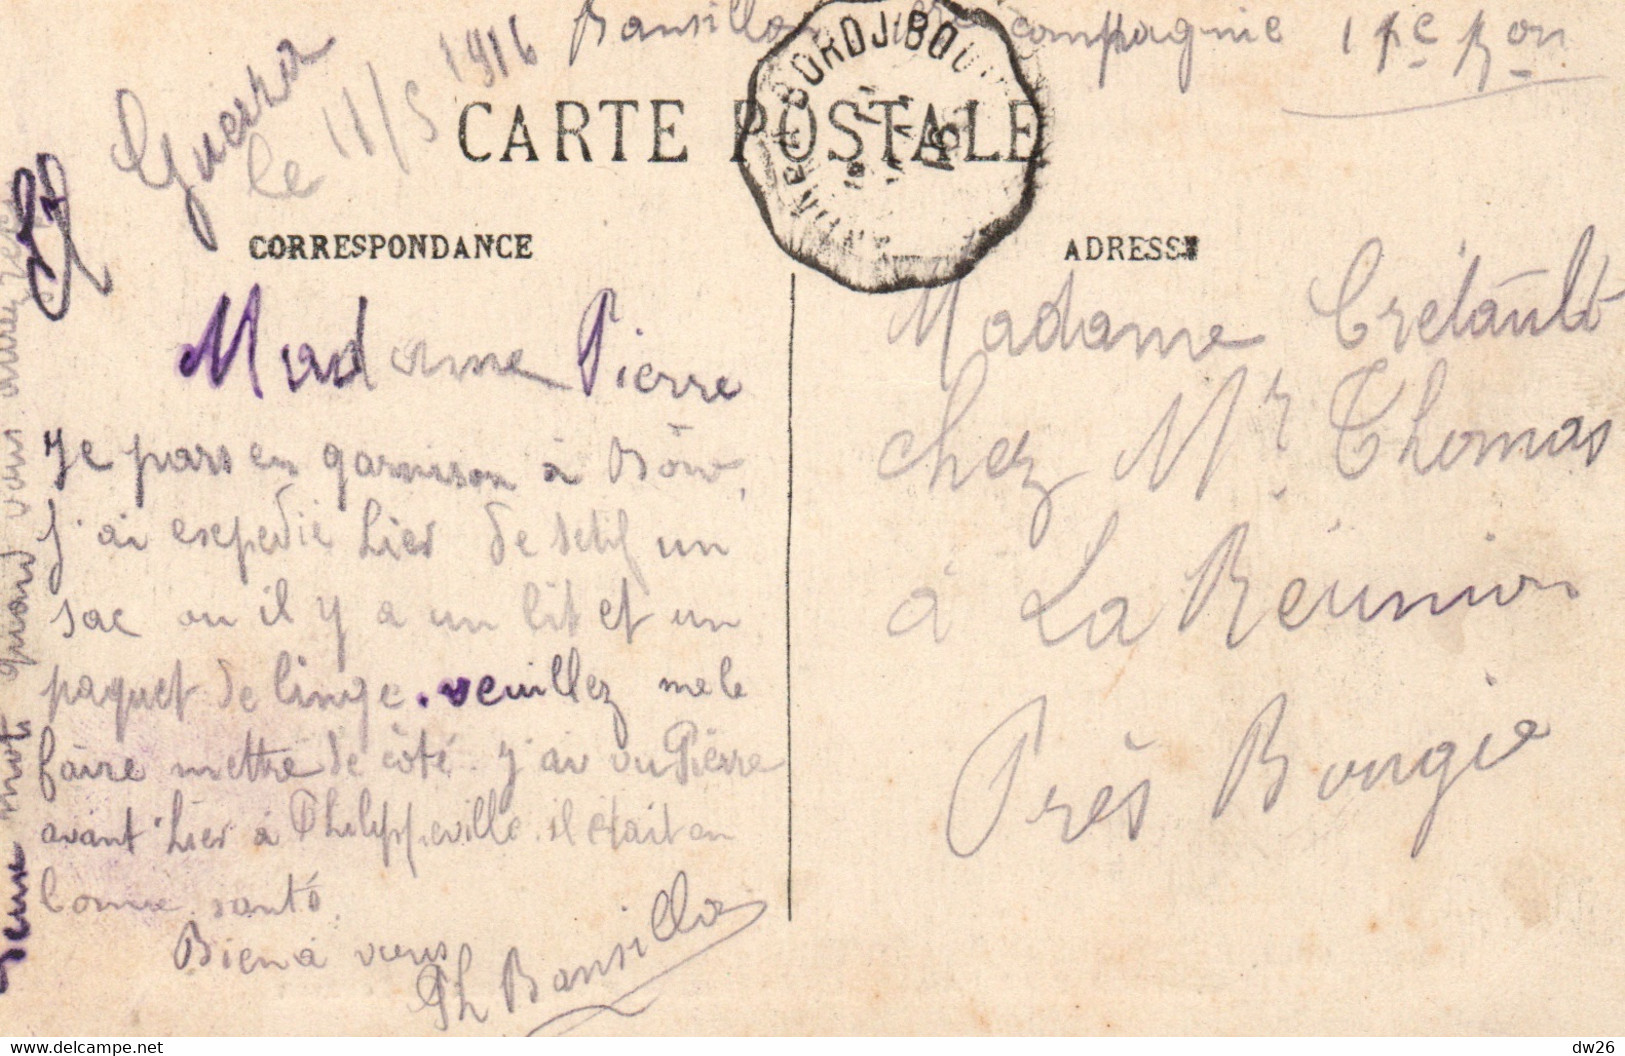 Bansillon 1re compagnie 11e Bon
Guerra
le 11/5 1916
CARTE POSTALE
CORRESPONDANCE
ADRESSE
BORDJ BOU
Madame Pierre
Je pars en garnison à Bône,
j'ai expedié hier de Setif un
sac ou il y a un lit et un
paquet de linge. veuillez me le
faire mettre de côté. j'ai vu Pièrre
avant hier à Philippeville. il était en
bonne santé.
Bien à vous
Ph Bansillon
mot quand vous aurez
Madame Cretault
chez Mr. Thomas
à La Réunion
Près Bougie
delcampe.net
dw26